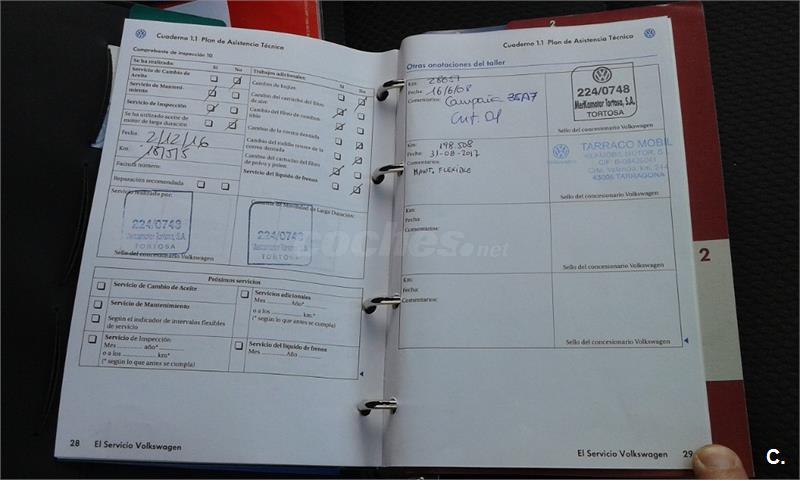 Cuaderno 1.1 Plan de Asistencia Técnica
Comprobante de inspección 10
Se ha realizado: Sí No
Servicio de Cambio de Aceite
Servicio de Manteni-
miento
Servicio de Inspección
Se ha utilizado aceite de
motor de larga duración
Fecha: 2/12/16
Km:
Factura número:
Reparación recomendada
Trabajos adicionales: Sí No
Cambio de bujías
Cambio del cartucho del filtro
de aire
Cambio del filtro de combus-
tible
Cambio de la correa dentada
Cambio del rodillo tensor de la
correa dentada
Cambio del cartucho del filtro
de polvo y polen
Servicio del líquido de frenos
Servicio realizado por:
224/0748
Merkamotor Tortosa, S.A.
TORTOSA
Sello del concesionario Volkswagen
de Movilidad de Larga Duración:
224/0748
Merkamotor Tortosa, S.A.
TORTOSA
Sello del concesionario Volkswagen
Próximos servicios
Servicio de Cambio de Aceite
Servicio de Mantenimiento
Según el indicador de intervalos flexibles
de servicio
Servicio de Inspección:
Mes año*
o a los km*
(* según lo que antes se cumpla)
Servicios adicionales
Mes Año*
o a los km*
(* según lo que antes se cumpla)
Servicio del líquido de frenos
Mes Año
28 El Servicio Volkswagen
Cuaderno 1.1 Plan de Asistencia Técnica
Otras anotaciones del taller
Km:
Fecha: 16/6/08
Comentarios: Campaña
224/0748
Merkamotor Tortosa, S.A.
TORTOSA
Sello del concesionario Volkswagen
Km: 198.508
Fecha: 31-08-2017
Comentarios:
MANT. FLEXIBLE
TARRACO MOBIL
43006 TARRAGONA
Sello del concesionario Volkswagen
Km:
Fecha:
Comentarios:
Sello del concesionario Volkswagen
Km:
Fecha:
Comentarios:
Sello del concesionario Volkswagen
El Servicio Volkswagen 29
2
2
coches.net
C.